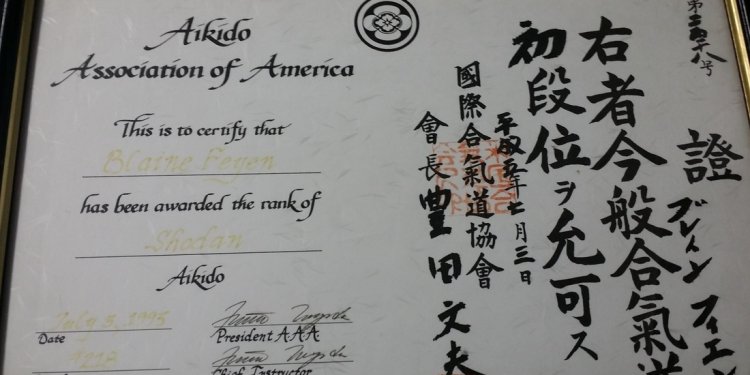 Aikido
Association of America
This is to certify that
Blaine Feyen
has been awarded the rank of
Shodan
Aikido
July 3, 1995
Date
President AAA
Chief Instructor
證
ブレイン フィエン
右者今般合氣道
初段位ヲ允可ス
平成五年七月三日
國際合氣道協會
會長豊田文夫